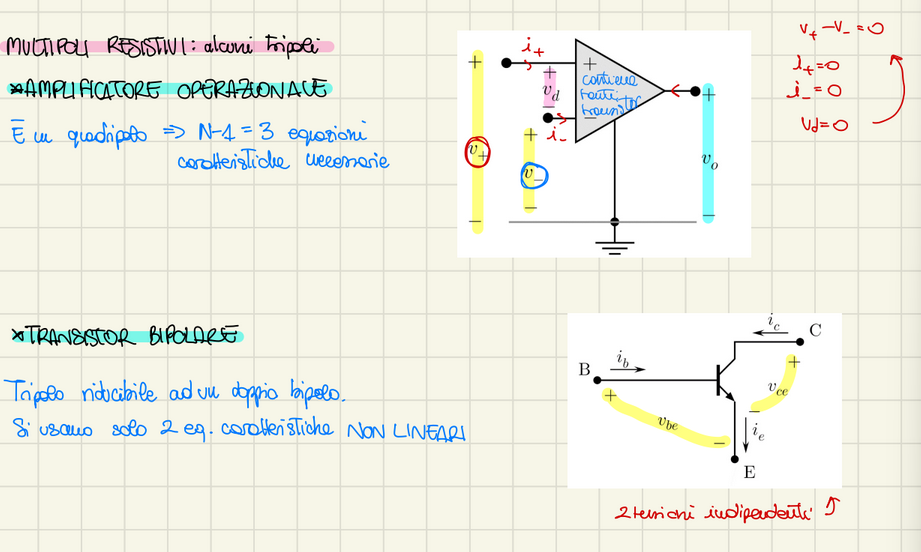 MULTIPOLI RESISTIVI: alcuni tripoli
*AMPLIFICATORE OPERAZIONALE
È un quadripolo => N-1 = 3 equazioni
caratteristiche necessarie
+ i+ + contiene
tanti
transistor
+ v_d − i− −
+ v+ −
+ v− −
+ v_o −
v+ − v− = 0
i+ = 0
i− = 0
Vd = 0
*TRANSISTOR BIPOLARE
Tripolo riducibile ad un doppio bipolo.
Si usano solo 2 eq. caratteristiche NON LINEARI
i_c C
B i_b
+ v_be −
+ v_ce −
i_e
E
2 tensioni indipendenti